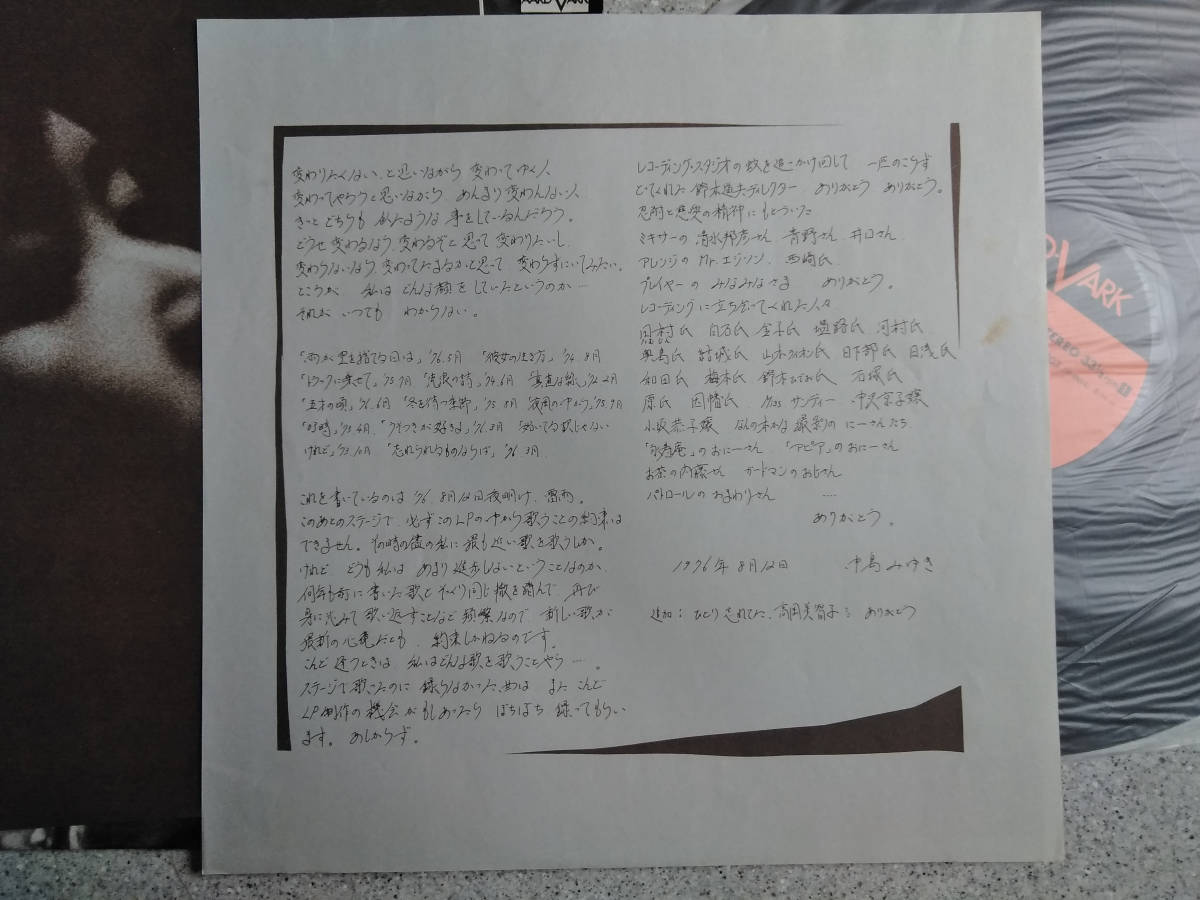 AARD VARK
変わりたくない、と思いながら 変わってゆく人
変わってやろうと思いながら あんまり変わんない人
きっと どちらも 似たような 事をしているんだろう。
どうせ 変わるなら 変わるぞと 思って 変わりたいし
変わらないなら 変わってたまるかと思って 変わらずにいてみたい。
ところが 私は どんな顔を していたというのか…
それが いつでも わからない。
「雨が空を捨てる日は」'76.5月 「彼女の生き方」'74.8月
「トラックに乗せて」'75.7月 「流浪の詩」'74.6月 「真直な線」'72.2月
「五才の頃」'76.6月 「冬を待つ季節」'75.8月 「夜風の中から」'75.9月
「忘れられるものならば」'76.3月
これを書いているのは '76 8月12日夜明け、雷雨。
このあとのステージで、必ずこのLPの中から歌うことの約束は
できません。その時の儘の私に 最も近い歌を歌うしか。
けれど どうも私は あまり進歩しないということなのか、
何年も前に 書いた歌と そっくり同じ轍を踏んで 再び
身に沁みて 歌い返すことなど 頻繁なので 新しい歌が
最新の心境だとも 約束しかねるのです。
こんど 逢うときは 私はどんな歌を 歌うことやら…。
ステージで歌ったのに 録らなかった曲は また こんど
LP制作の機会が もしあったら ぼちぼち 録ってもらい
ます。あしからず。
レコーディング・スタジオの蚊を追っかけ回して 一匹のこらず
とってくれた 鈴木 ディレクター ありがとう ありがとう。
忍耐と 精神に もとづいた
ミキサーの 清水邦彦さん 青野さん 井口さん
アレンジの Mr.エジソン、西崎氏
プレイヤーの みなみなさま ありがとう。
レコーディングに立ち会ってくれた人々
田村氏 白石氏 金子氏 塩路氏 河村氏
奥島氏 結城氏 山本 氏 日下部氏 日浅氏
和田氏 梅本氏 鈴木ひでお氏 石塚氏
原氏 因幡氏 Miss.サンディー 中沢京子嬢
小坂恭子嬢 撮影の にーさんたち
「 庵」のおにーさん 「アピア」のおにーさん
お茶の内藤さん ガードマンのおじさん
パトロールの おまわりさん ‥‥
ありがとう。
1976年8月12日 中島みゆき
追加:ひとり忘れてた、高岡美智子さん ありがとう
VARK
STEREO 33⅓
1